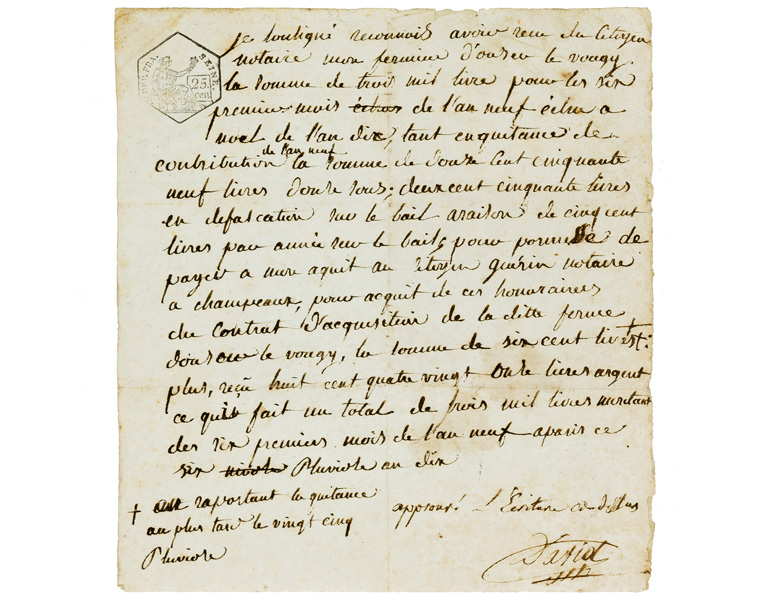 RÉP. FRA.
SEINE
25
cen
je souligné reconnois avoir recu du Citoyen
notaire mon fermier d'ouzou le vougy.
la somme de trois mil livre pour les six
premier mois échus de l'an neuf échu a
noel de l'an dix, tant en quitance de
contribution de l'an neuf la somme de douze Cent cinquante
neuf livres douze sous; deux cent cinquante livres
en defalcation sur le bail araison de cinq cent
livres par année sur le bail, pour pormesse de
payer a mon aquit au Citoyen guérin notaire
a champeaux, pour acquit de ces honoraires
du Contrat d'acquisition de la ditte ferme
douzou le vougy, la somme de six cent livres +:
plus, reçu huit cent quatre vingt Onze livres argent
ce qui fait un total de trois mil livres montant
des six premiers mois de l'an neuf a paris ce
six nivose Pluviose an dix
+ en raportant la quitance
au plus tard le vingt cinq
Pluviose
approuvé l'Ecriture ci dessus
David